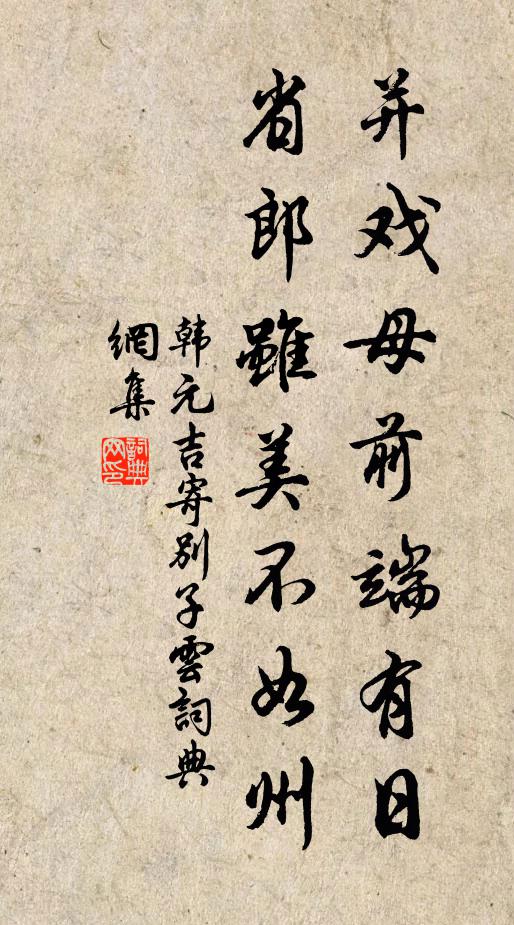 并戏母前端有日
省郎雖美不如州
韩元吉寄别子雲詞典
網集
詞典
网印